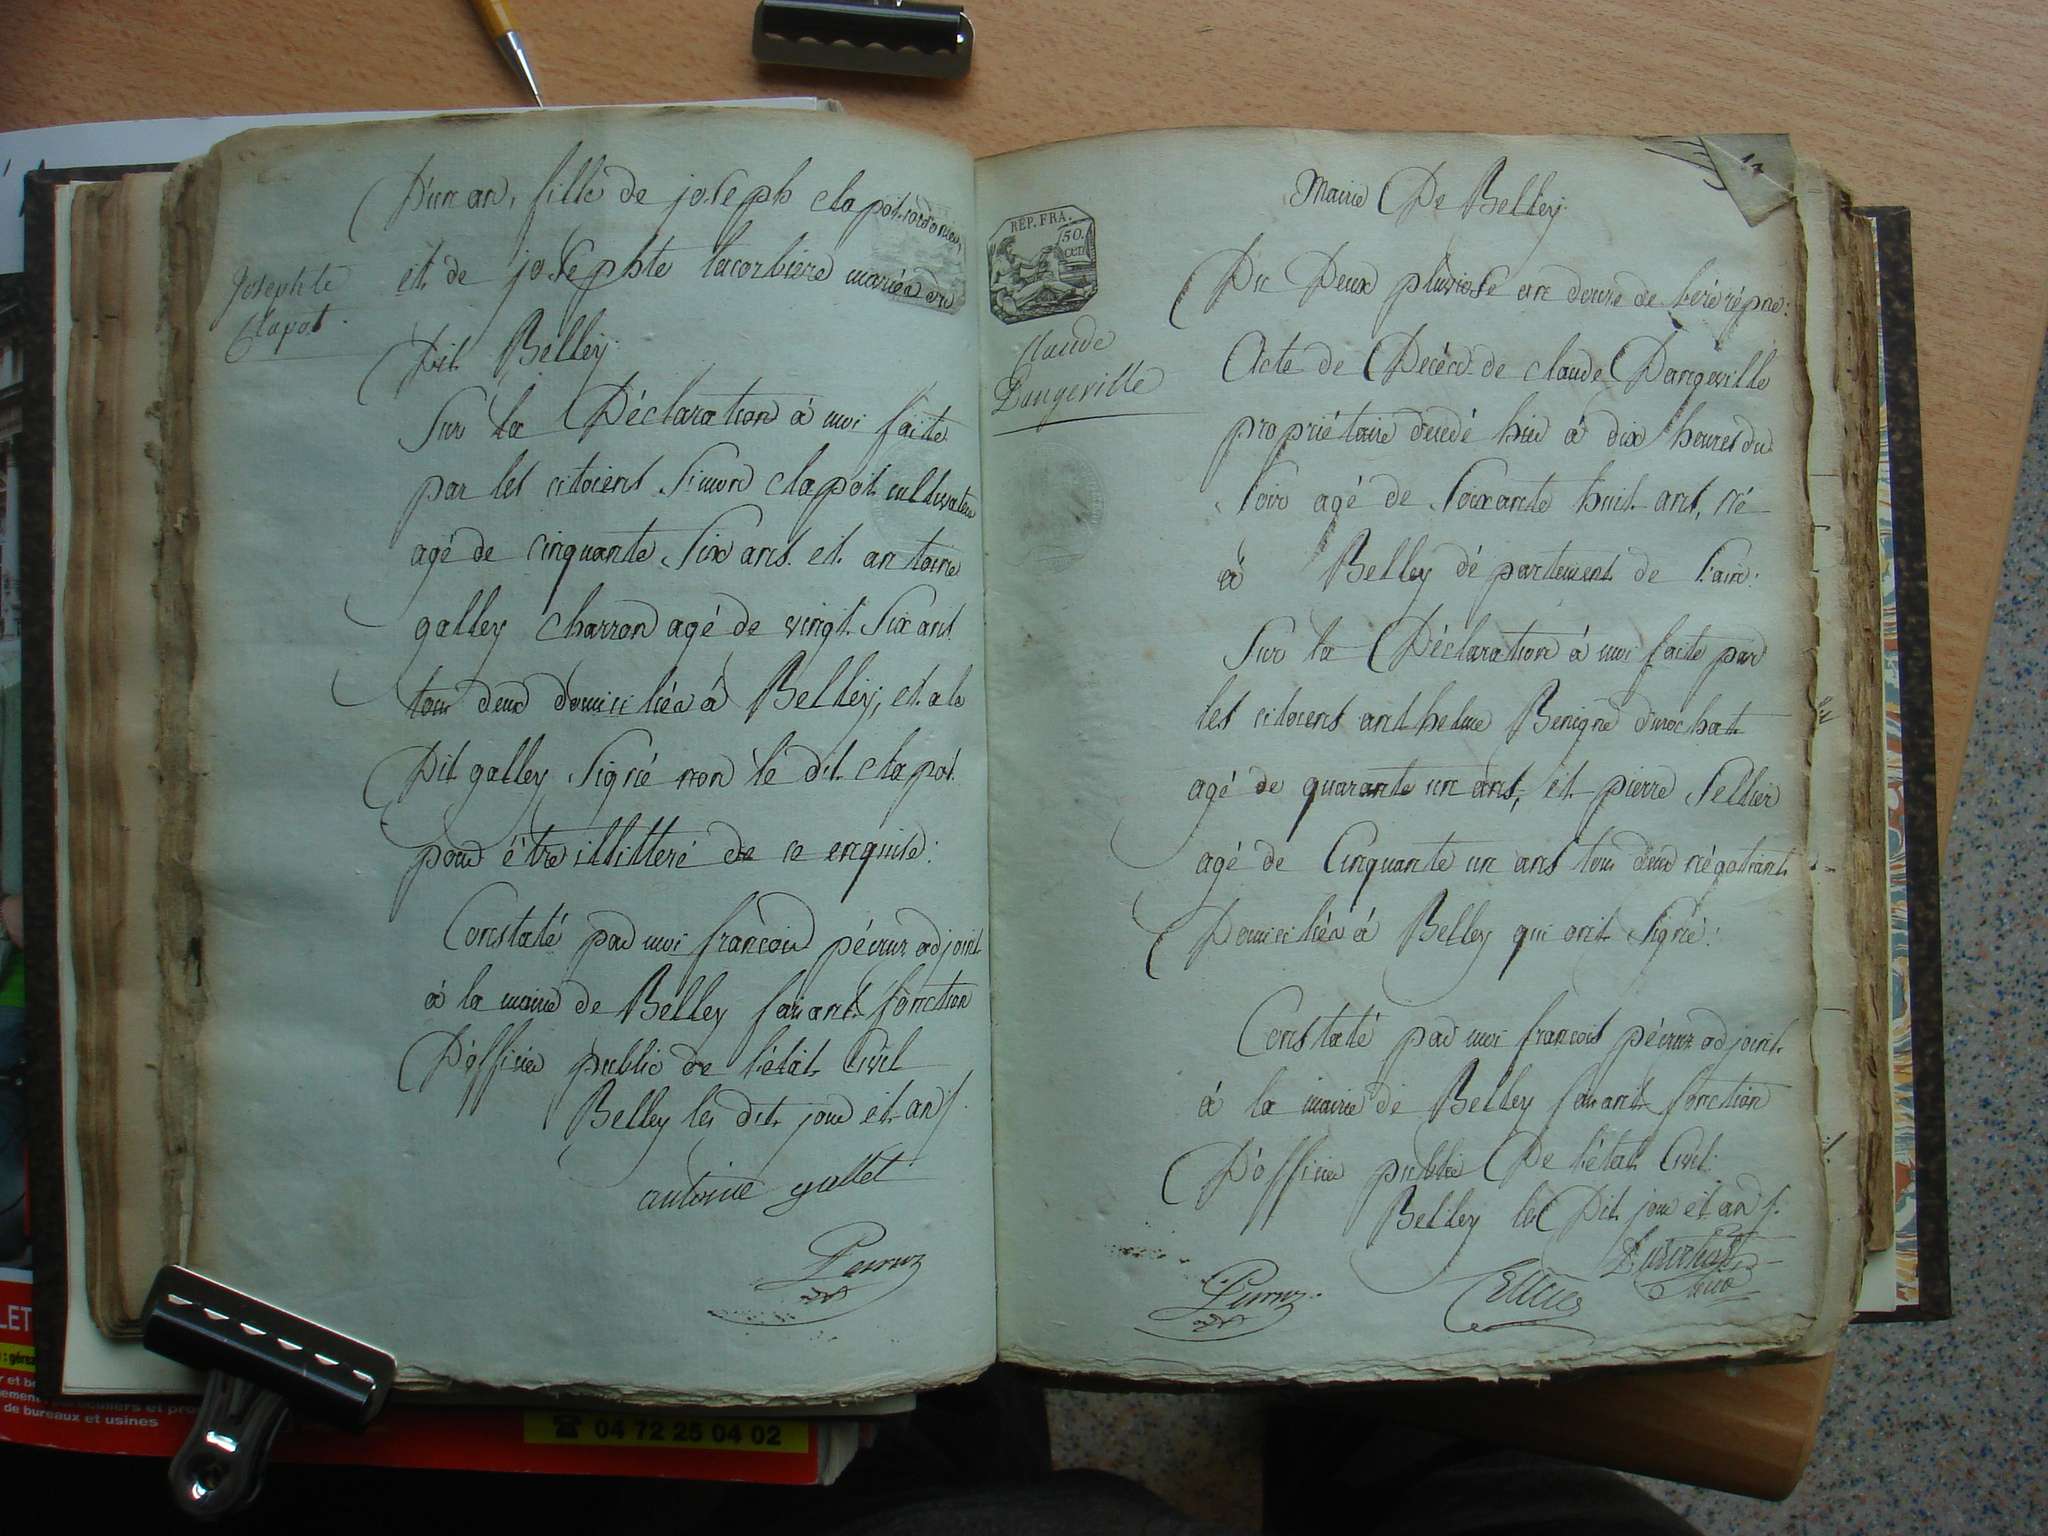 D'un an, fille de joseph clapot cordonier
et de josephte lacorbiere mariés au
Josephte
Clapot.
Dit Belley.
Sur la Déclaration à moi faite
par les citoiens Simon clapot cultivateur
agé de cinquante Six ans et antoine
galley charron agé de vingt Six ans
tous deux domiciliés à Belley, et a le
Dit galley Signé non le dit clapot
pour être illitteré de ce enquis:
Constaté par moi françois pécruz adjoint
à la mairie de Belley faisant fonction
D'officier public de l'état Civil
Belley les dit jour et an
antoine gallet
Mairie De Belley.
RÉP. FRA.
50.
CEN
Du Deux pluviose an douze de l'ére répne:
Claude
Dangeville
Acte de Décès de claude Dangeville
propriétaire decedé hier à dix heures du
Soir agé de Soixante huit ans, né
à Belley département de l'ain:
Sur la Déclaration à moi faite par
les citoiens anthelme Benigne durochat
agé de quarante un ans, et pierre Sellier
agé de Cinquante un ans tous deux négotiants
Domiciliés à Belley qui ont Signé:
Constaté par moi françois pécruz adjoint
à la mairie de Belley faisant fonction
D'officier public De l'état Civil:
Belley les Dit jour et an
LET
de bureaux et usines
04 72 25 04 02